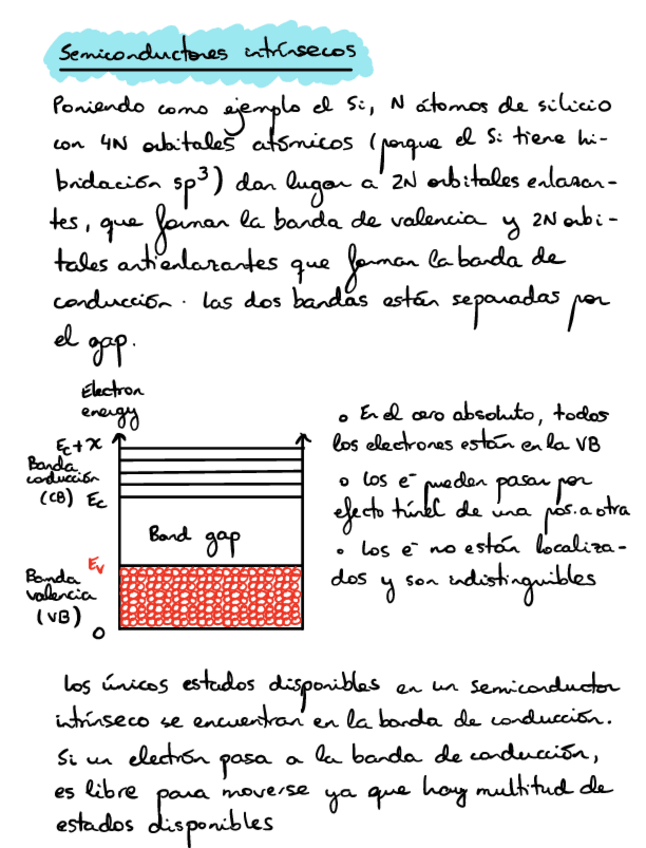 Semiconductores intrínsecos
Poniendo como ejemplo el Si, N átomos de silicio
con 4N orbitales atómicos (porque el Si tiene hi-
bridación sp³) dan lugar a 2N orbitales enlazan-
tes, que forman la banda de valencia y 2N orbi-
tales antienlazantes que forman la banda de
conducción. Las dos bandas están separadas por
el gap.
Electron
energy
Ec+x
Banda
conducción
(CB) Ec
Band gap
Ev
Banda
valencia
(VB)
0
• En el cero absoluto, todos
los electrones están en la VB
• Los e⁻ pueden pasar por
efecto túnel de una pos. a otra
• Los e⁻ no están localiza-
dos y son indistinguibles
Los únicos estados disponibles en un semiconductor
intrínseco se encuentran en la banda de conducción.
Si un electrón pasa a la banda de conducción,
es libre para moverse ya que hay multitud de
estados disponibles